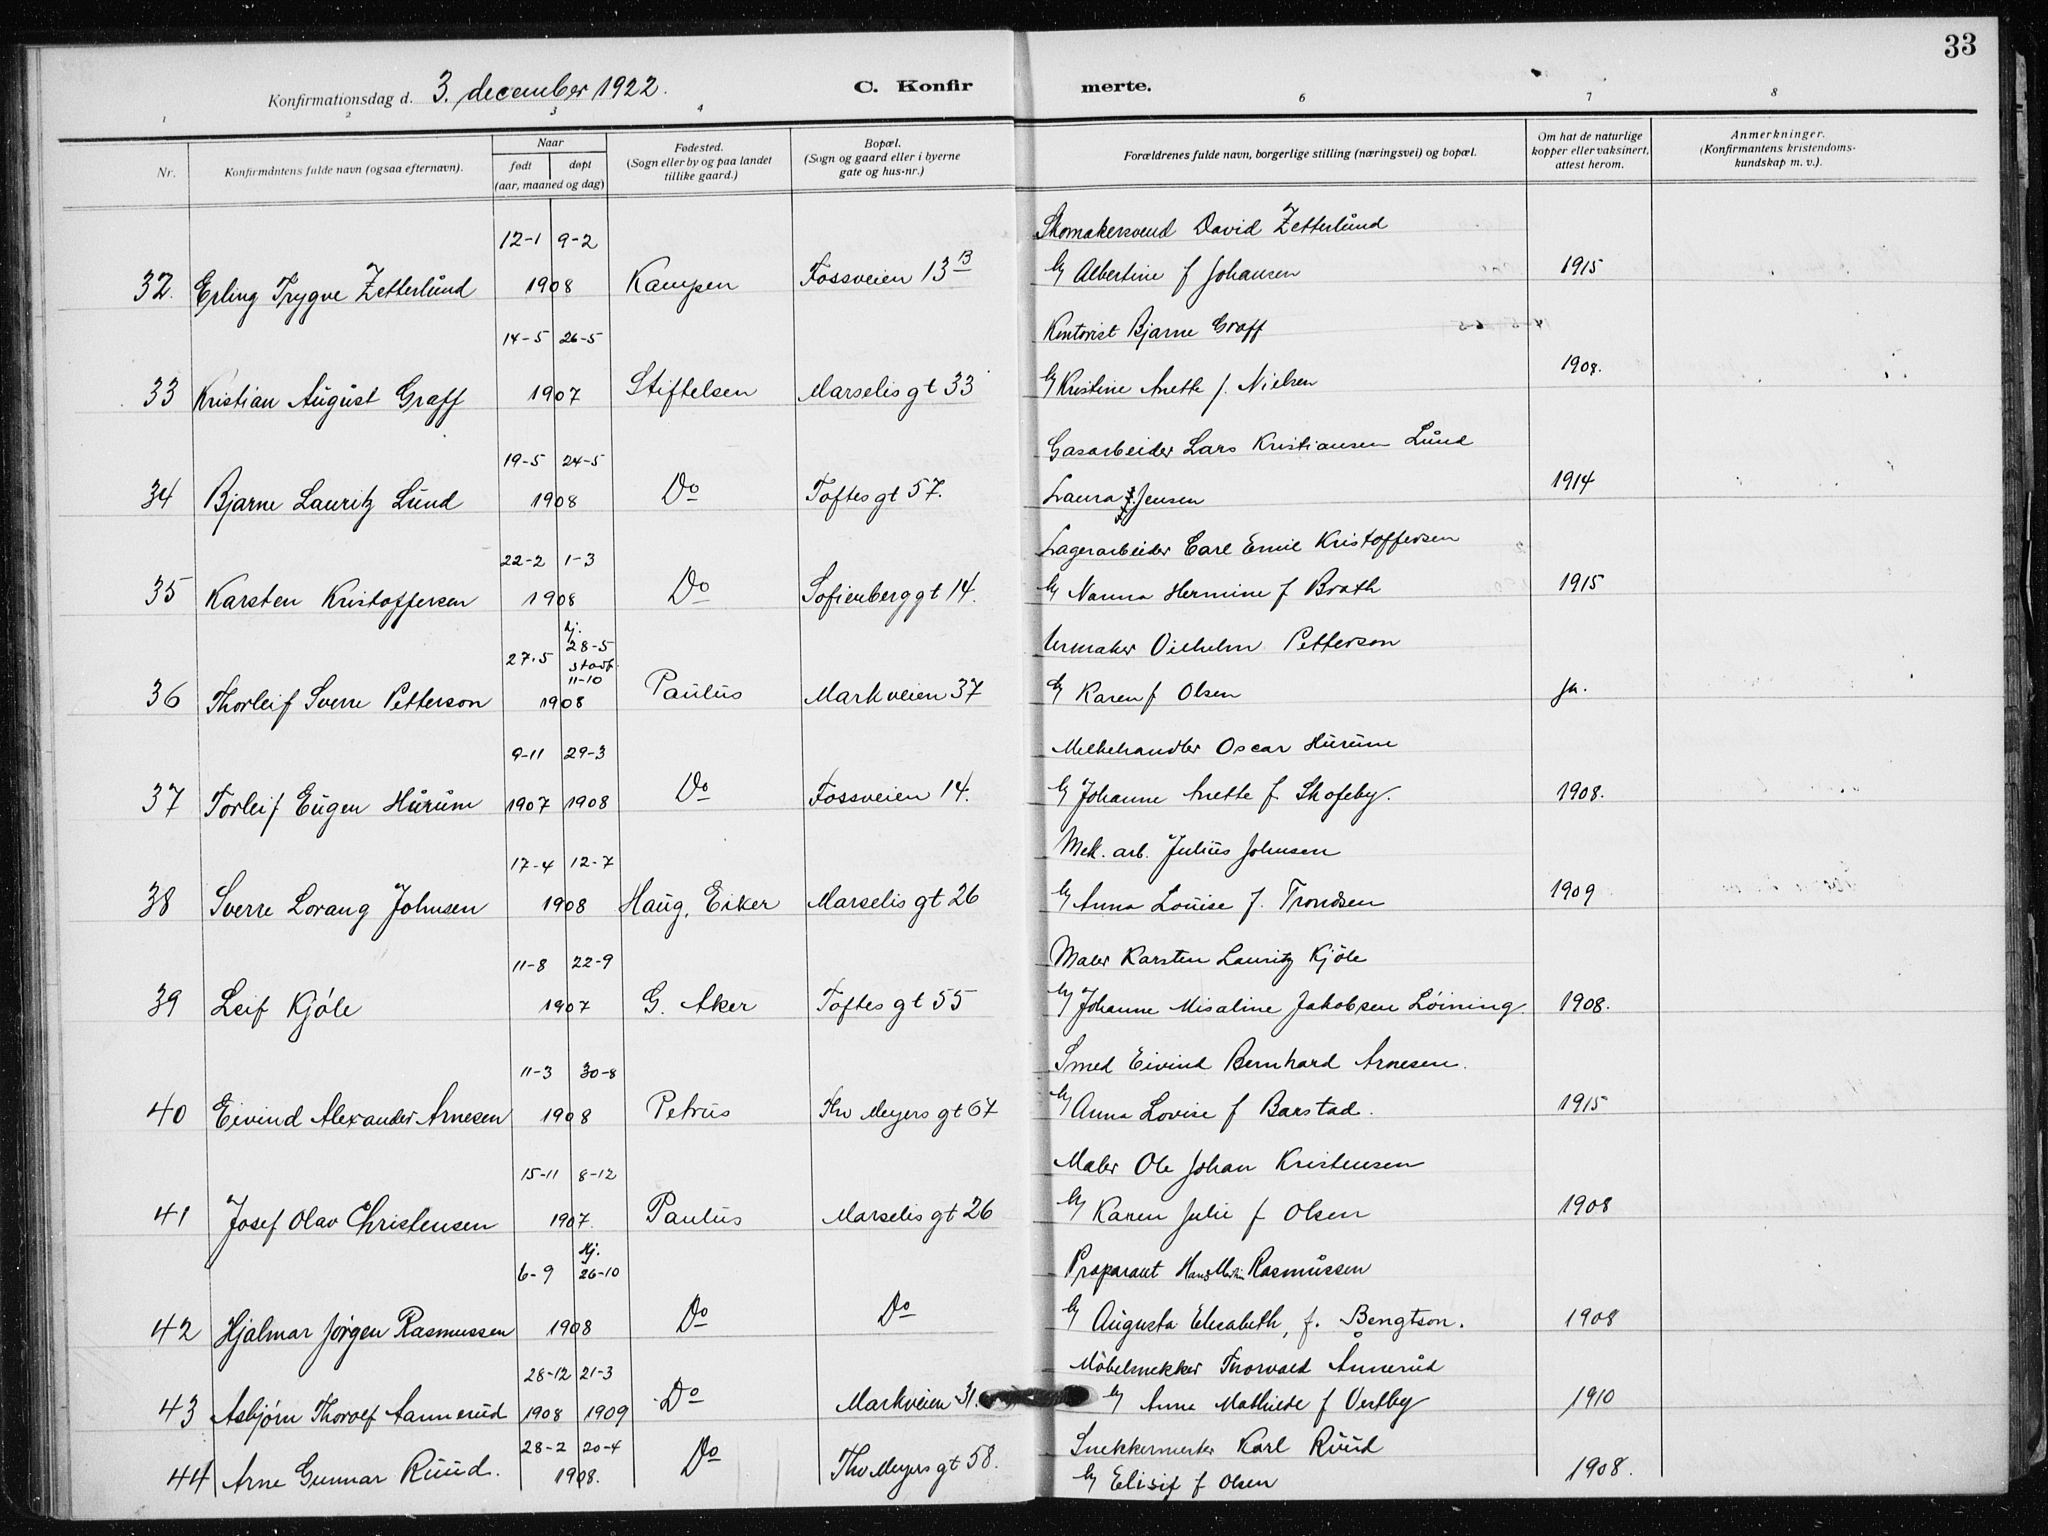 33
Konfirmationsdag d. 3. december 1922.
C. Konfirmerte.
1 2 3 4 6 7 8
Nr.
Konfirmantens fulde navn (ogsaa efternavn).
Naar
født døpt
(aar, maaned og dag)
Fødested.
(Sogn eller by og paa landet
tillike gaard.)
Bopæl.
(Sogn og gaard eller i byerne
gate og hus-nr.)
Forældrenes fulde navn, borgerlige stilling (næringsvei) og bopæl.
Om hat de naturlige
kopper eller vaksinert,
attest herom.
Anmerkninger.
(Konfirmantens kristendoms-
kundskap m. v.).
12-1 9-2 Skomakersvend David Zetterlund
32. Erling Trygve Zetterlund 1908 Kampen Fossveien 13 B Eg Albertine f Johansen 1915
14-5 26-5 Kontorist Bjarne Graff
33 Kristian August Graff 1907 Stiftelsen Marselis gt 33 Eg Kristine Anette f. Nielsen 1908.
19-5 24-5 Gasarbeider Lars Kristiansen Lund
34 Bjarne Lauritz Lund 1908 Do Toftes gt 57. Laura f. Jensen 1914
22-2 1-3 Lagerarbeider Carl Emil Kristoffersen
35 Karsten Kristoffersen 1908 Do Sofienberggt 14. Eg Nanna Hermine f Brath 1915
27-5 hj. 28-5 stadf. 11-10 Urmaker Vilhelm Petterson
36 Thorleif Sverre Petterson 1908 Paulus Markveien 37 Eg Karen f Olsen ja.
9-11 29-3 Melkehandler Oscar Hurum
37 Torleif Eugen Hurum 1907 1908 Do Fossveien 14. Eg Johanne Anette f Skofeby. 1908.
17-4 12-7 Mek. arb. Julius Johnsen
38 Sverre Lorang Johnsen 1908 Haug, Eiker Marselis gt 26 Eg Anna Louise f. Trondsen 1909
11-8 22-9 Maler Karsten Lauritz Kjöle
39 Leif Kjóle 1907 G. Aker Toftes gt 55 Eg Johanne Misaline Jakobsen Löining 1908.
11-3 30-8 Smed Eivind Bernhard Arnesen.
40 Eivind Alexander Arnesen 1908 Petrus Thv Meyers gt 67 Eg Anna Lovise f Barstad. 1915
15-11 8-12 Maler Ole Johan Kristensen
41 Josef Olav Christensen 1907. Paulus Marselis gt 26 Eg Karen Julie f Olsen 1908
6-9 Hj. 26-10 Præparant Hans Martin Rasmussen
42 Hjalmar Jørgen Rasmussen 1908 Do Do Eg Augusta Elisabeth, f. Bengtson. 1908
28-12 21-3 Möbelsnekker Thorvald Ånnerud
43 Asbjørn Thorolf Aannerud 1908 1909 Do Markveien 31. Eg Anna Mathilde f Vestby 1910
28-2 20-4 Snekkermester Karl Ruud
44 Arne Gunnar Ruud. 1908. Do Thv Meyers gt 58. Eg Elisif f Olsen 1908.